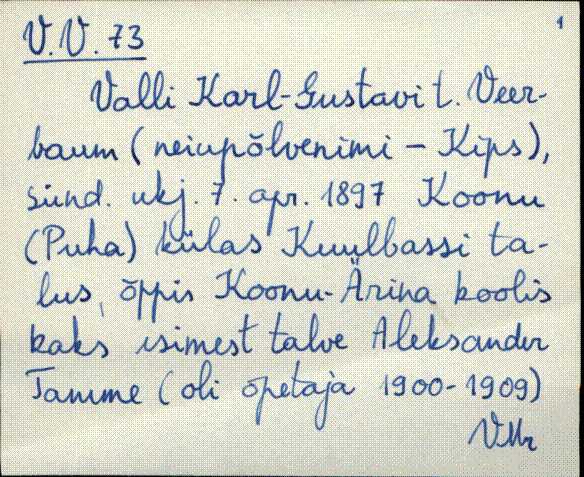 1
V.V. 73
Valli Karl-Gustavi t. Veer-
baum (neiupõlvenimi – Kips),
sünd. ukj. 7. apr. 1897 Koonu
(Puha) külas Kuulbassi ta-
lus, õppis Koonu-Ärina koolis
kaks esimest talve Aleksander
Tamme (oli õpetaja 1900-1909)